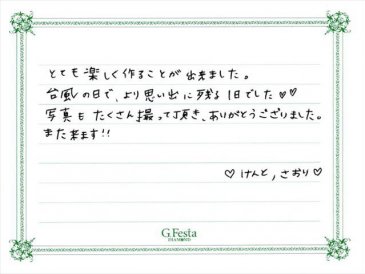 とても楽しく作ることが出来ました。
台風の日で、より思い出に残る1日でした♡♡
写真もたくさん撮って頂き、ありがとうございました。
また来ます!!
♡けんと,さおり♡
G.Festa
DIAMOND